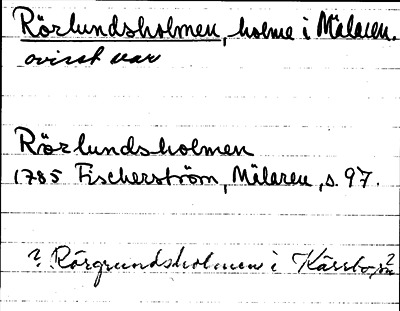 Rörlundsholmen, holme i Mälaren.
ovisst var
Rörlundsholmen
1785 Fischerström, Mälaren, s. 97.
? Rörgrundsholmen i